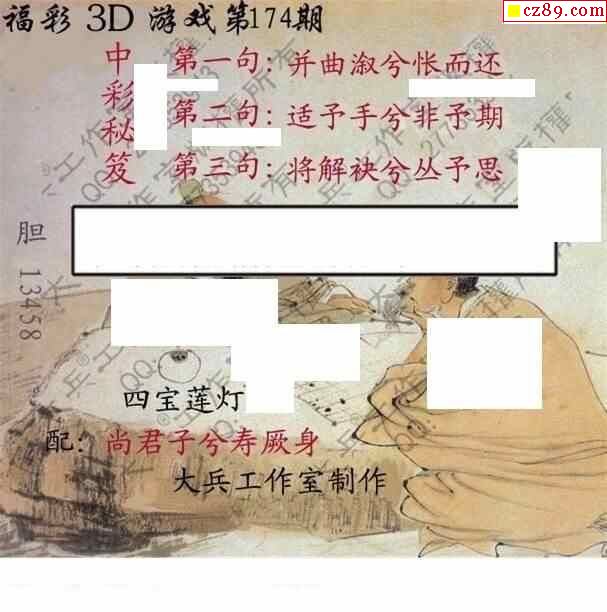 福彩 3D 游戏 第174期
cz89.com
中彩秘笈
第一句：并曲溆兮怅而还
第二句：适予手兮非予期
第三句：将解袂兮丛予思
胆 13458
四宝莲灯
配：尚君子兮寿厥身
大兵工作室制作